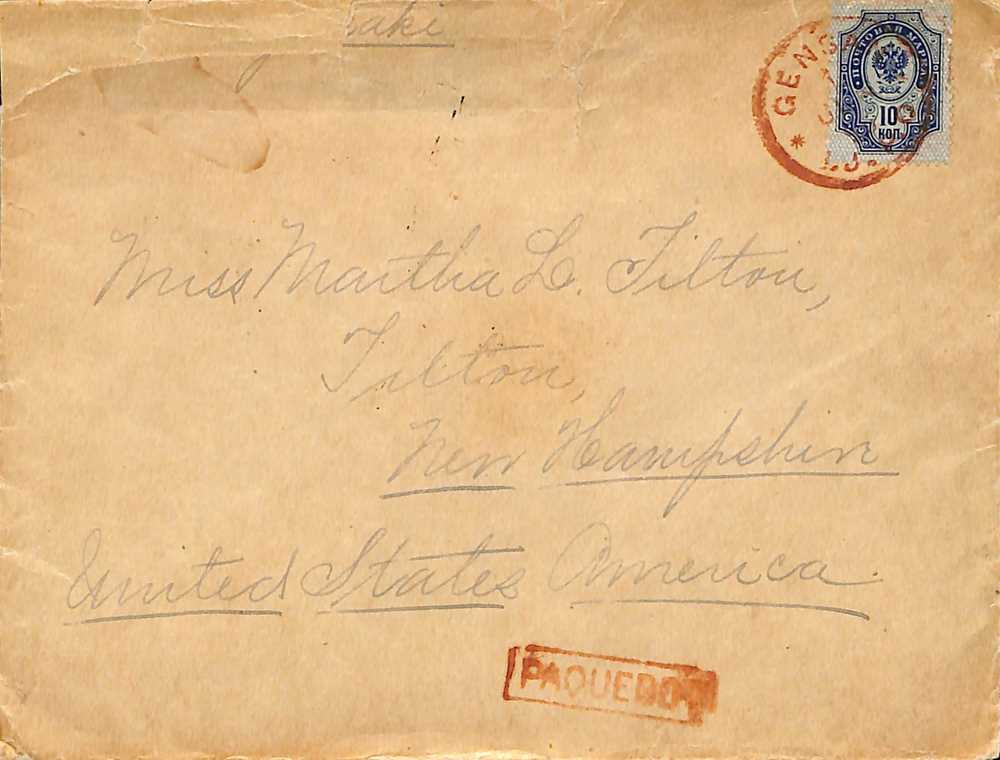 ПОЧТОВАЯ МАРКА
10
КОП.
Miss Martha L. Tilton,
Tilton,
New Hampshire
United States America.
PAQUEBOT